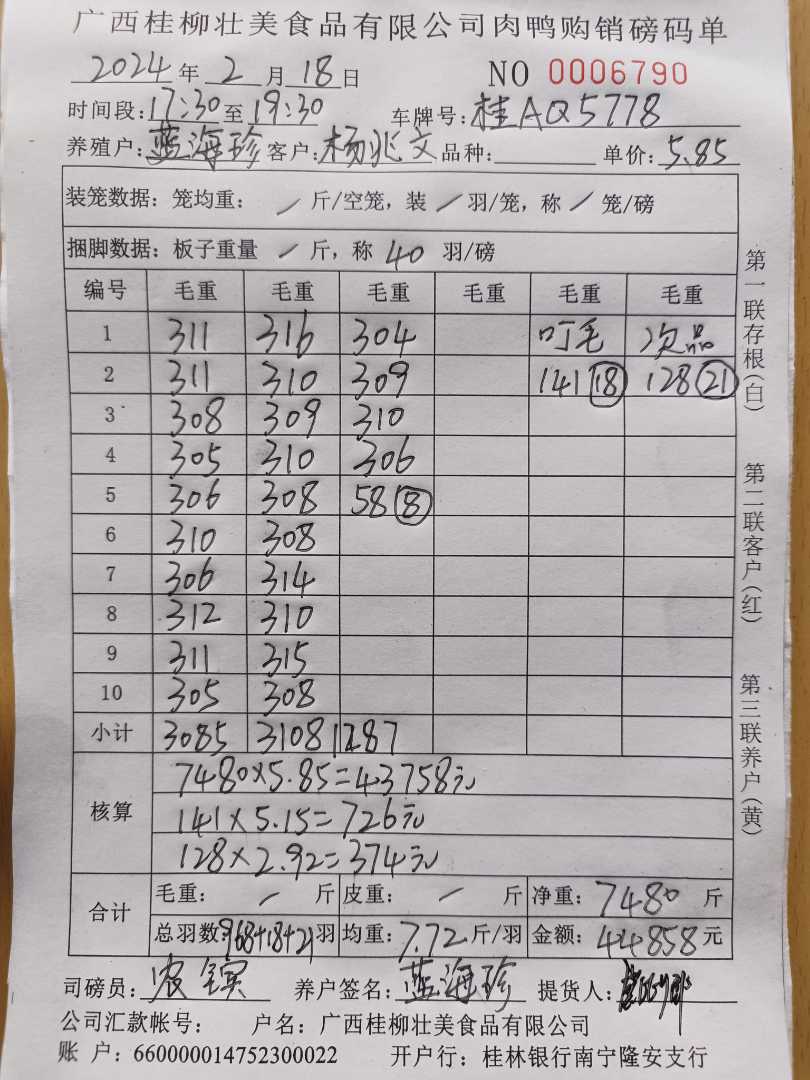 广西桂柳壮美食品有限公司肉鸭购销磅码单
2024年2月18日 NO 0006790
时间段:17:30至19:30 车牌号:桂AQ5778
养殖户:蓝海珍 客户:杨兆文 品种: 单价:5.85
装笼数据:笼均重: / 斤/空笼,装 / 羽/笼,称 / 笼/磅
捆脚数据:板子重量 / 斤,称 40 羽/磅
编号 毛重 毛重 毛重 毛重 毛重 毛重
1 311 316 304 叮毛 次品
2 311 310 309 141 18 128 21
3 308 309 310
4 305 310 306
5 306 308 58 8
6 310 308
7 306 314
8 312 310
9 311 315
10 305 308
小计 3085 3108 1287
核算 7480×5.85=43758元
141×5.15=726元
128×2.92=374元
合计 毛重: / 斤 皮重: / 斤 净重:7480 斤
总羽数:968+18+21羽 均重:7.72斤/羽 金额:44858元
司磅员:农 养户签名:蓝海珍 提货人:
公司汇款帐号: 户名:广西桂柳壮美食品有限公司
账 户:660000014752300022 开户行:桂林银行南宁隆安支行
第一联存根(白)
第二联客户(红)
第三联养户(黄)